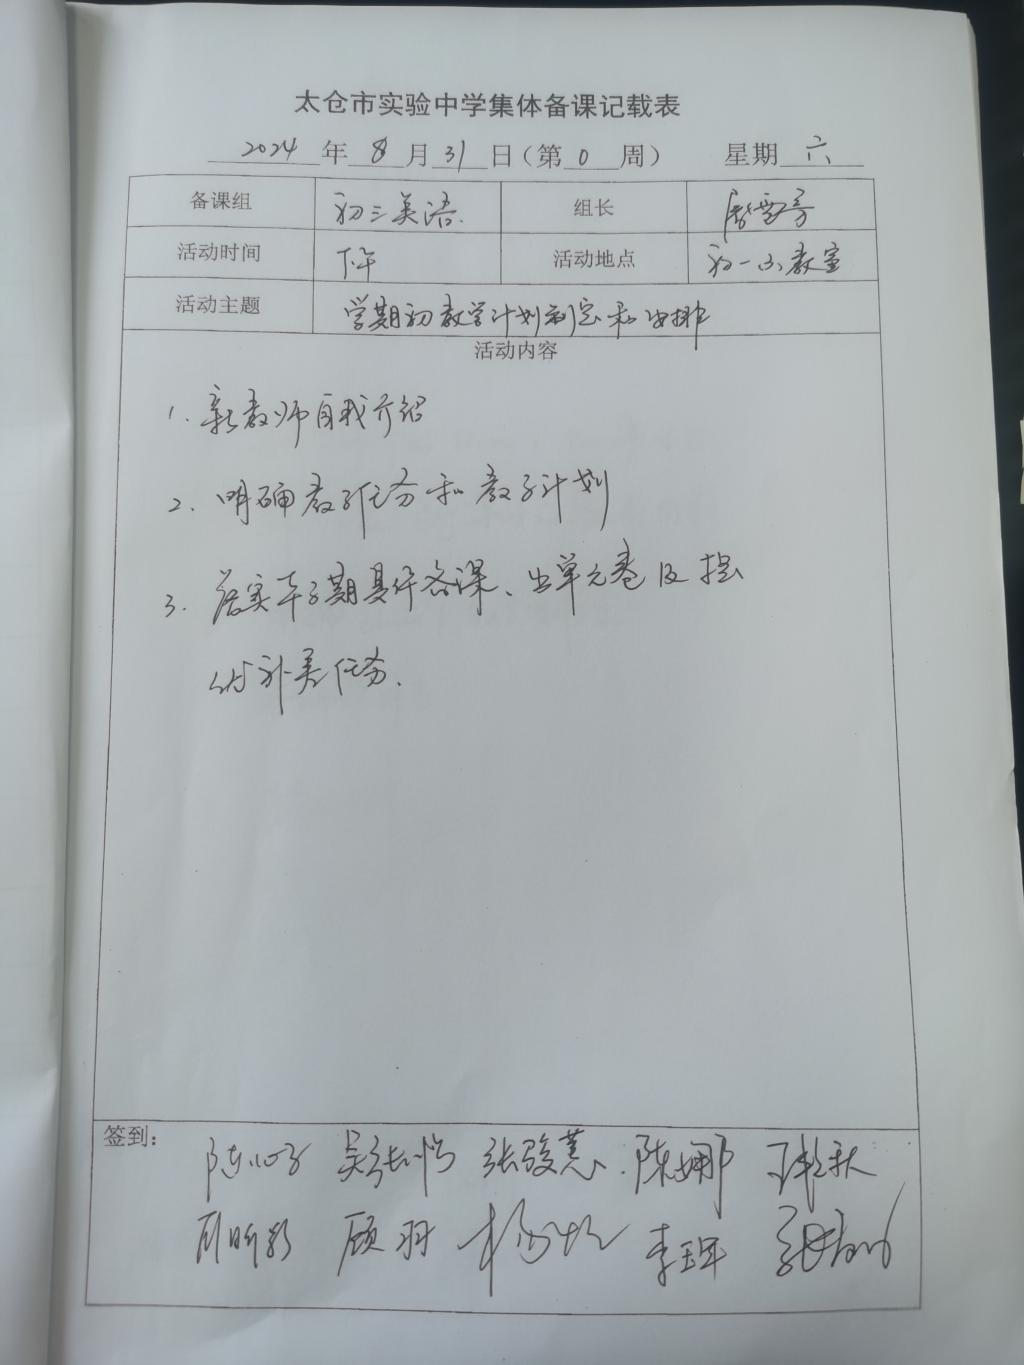 太仓市实验中学集体备课记载表
2024年8月31日(第0周) 星期六
备课组 初三英语 组长
活动时间 下午 活动地点 初一(3)教室
活动主题 学期初教学计划制定和安排
活动内容
1. 新教师自我介绍
2. 明确教学任务和教学计划
3. 落实本学期集体备课、出单元卷及
的补差任务.
签到:
张骏慧 陈娜
顾羽 杨 李